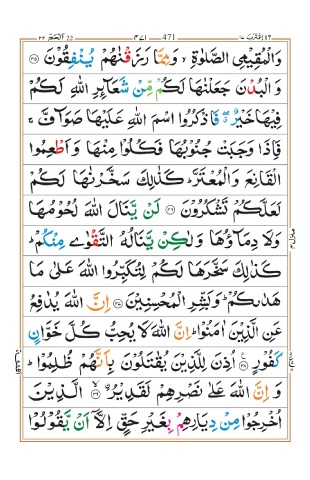 ٢٢ اَلْحَجّ 22 ٤٧١ 471 اِقْتَرَبَ ١٧
وَالْمُقِيْمِى الصَّلٰوةِ ۙ وَمِمَّا رَزَقْنٰهُمْ يُنْفِقُوْنَ ۝٣٥
وَ الْبُدْنَ جَعَلْنٰهَا لَكُمْ مِّنْ شَعَآئِرِ اللّٰهِ لَكُمْ
فِيْهَا خَيْرٌ ۖۗ فَاذْكُرُوا اسْمَ اللّٰهِ عَلَيْهَا صَوَآفَّ ۚ
فَاِذَا وَجَبَتْ جُنُوْبُهَا فَكُلُوْا مِنْهَا وَاَطْعِمُوا
الْقَانِعَ وَالْمُعْتَرَّ ؕ كَذٰلِكَ سَخَّرْنٰهَا لَكُمْ
لَعَلَّكُمْ تَشْكُرُوْنَ ۝٣٦ لَنْ يَّنَالَ اللّٰهَ لُحُوْمُهَا
وَلَا دِمَآؤُهَا وَلٰكِنْ يَّنَالُهُ التَّقْوٰى مِنْكُمْ ؕ
كَذٰلِكَ سَخَّرَهَا لَكُمْ لِتُكَبِّرُوا اللّٰهَ عَلٰى مَا
هَدٰىكُمْ ؕ وَبَشِّرِ الْمُحْسِنِيْنَ ۝٣٧ اِنَّ اللّٰهَ يُدٰفِعُ
عَنِ الَّذِيْنَ اٰمَنُوْا ؕ اِنَّ اللّٰهَ لَا يُحِبُّ كُلَّ خَوَّانٍ
كَفُوْرٍ ۝٣٨ اُذِنَ لِلَّذِيْنَ يُقٰتَلُوْنَ بِاَنَّهُمْ ظُلِمُوْا ؕ
وَ اِنَّ اللّٰهَ عَلٰى نَصْرِهِمْ لَقَدِيْرُ ۙ۝٣٩ ۨالَّذِيْنَ
اُخْرِجُوْا مِنْ دِيَارِهِمْ بِغَيْرِ حَقٍّ اِلَّاۤ اَنْ يَّقُوْلُوْا